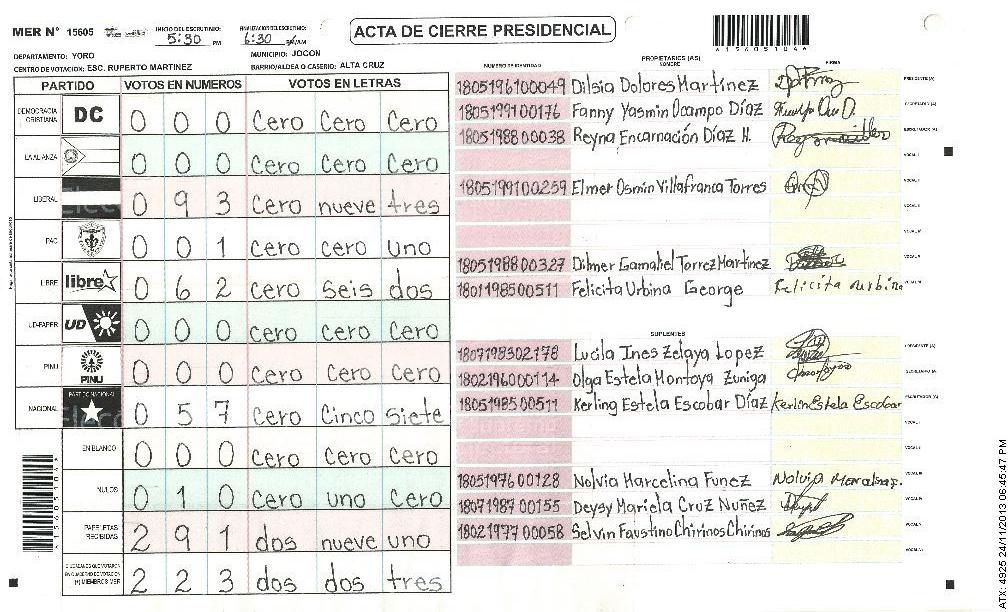 MER N° 15605
INICIO DEL ESCRUTINIO: 5:30 PM
FINALIZACION DEL ESCRUTINIO: 6:30 PM/AM
ACTA DE CIERRE PRESIDENCIAL
A156051044
DEPARTAMENTO: YORO
MUNICIPIO: JOCON
CENTRO DE VOTACION: ESC. RUPERTO MARTINEZ
BARRIO/ALDEA O CASERIO: ALTA CRUZ
PARTIDO VOTOS EN NUMEROS VOTOS EN LETRAS
DEMOCRACIA CRISTIANA DC 0 0 0 Cero Cero Cero
LA ALIANZA 0 0 0 Cero Cero Cero
LIBERAL 0 9 3 Cero nueve tres
PAC 0 0 1 Cero cero uno
LIBRE libre 0 6 2 cero seis dos
UD-FAPER UD 0 0 0 cero cero cero
PINU PINU 0 0 0 cero cero cero
NACIONAL PARTIDO NACIONAL 0 5 7 Cero Cinco siete
EN BLANCO 0 0 0 Cero Cero Cero
NULOS 0 1 0 Cero uno Cero
PAPELETAS RECIBIDAS 2 9 1 dos nueve uno
CIUDADANOS QUE VOTARON EN CUADERNO DE VOTACION (+) MIEMBROS MER 2 2 3 dos dos tres
NUMERO DE IDENTIDAD PROPIETARIOS (AS) NOMBRE FIRMA
1805196100049 Dilsia Dolores Martínez PRESIDENTE(A)
1805199100176 Fanny Yasmin Ocampo Díaz SECRETARIO (A)
1805198800038 Reyna Encarnación Díaz H. ESCRUTADOR (A)
VOCAL I
1805199100259 Elmer Osmin Villafranca Torres VOCAL II
VOCAL III
VOCAL IV
1805198800327 Dilmer Gamaliel Torrez Martinez VOCAL V
1801198500511 Felicita Urbina George Felicita Urbina VOCAL VI
SUPLENTES
1807198302178 Lucila Ines Zelaya Lopez PRESIDENTE (A)
1802196000114 Olga Estela Montoya Zuniga SECRETARIO (A)
1805198500511 Kerling Estela Escobar Díaz Kerlin Estela Escobar ESCRUTADOR (A)
VOCAL I
VOCAL II
1805197600128 Nolvia Marcelina Funez VOCAL III
1807198700155 Deysy Mariela Cruz Nuñez VOCAL IV
1802197700058 Selvin Faustino Chirinos Chirinos VOCAL V
VOCAL VI
A156051044
ATX: 4925 24/11/2013 06:45:47 PM